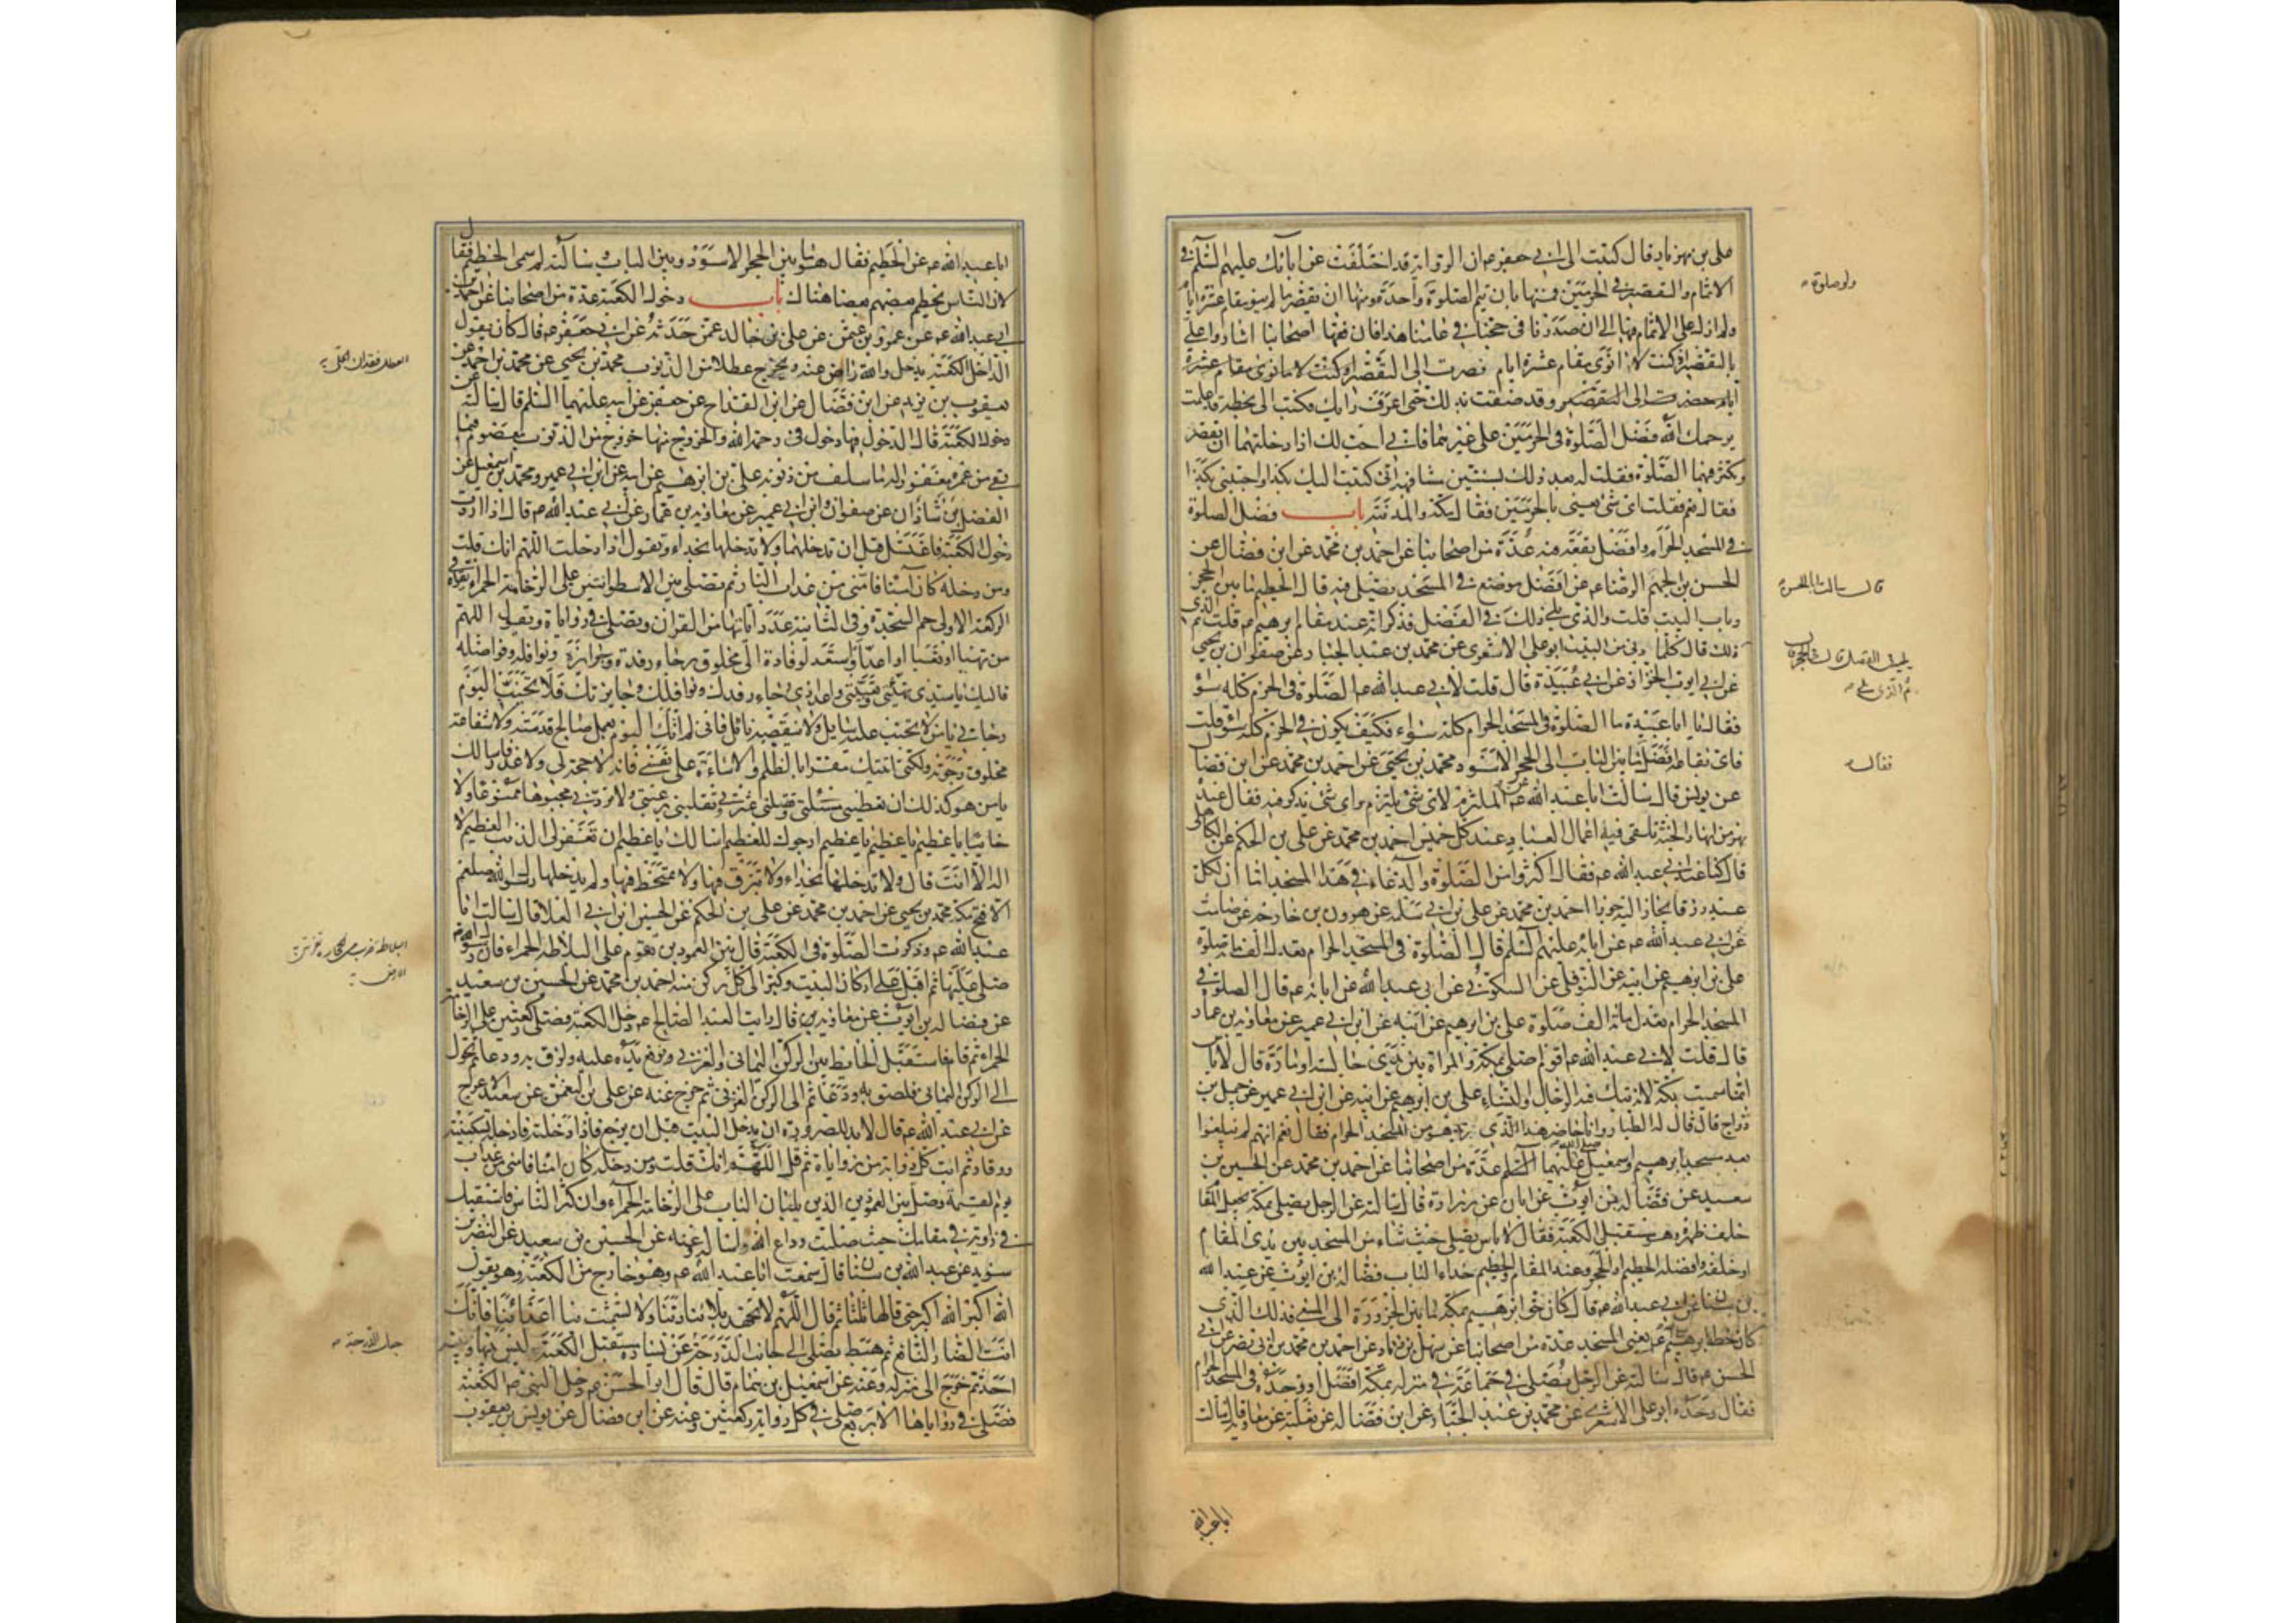 علي بن مهزيار قال كتبت الى ابي جعفر ع ان الرواية قد اختلفت عن ابائك عليهم السلم في
الاتمام والتقصير في الحرمين فمنها بان يتم الصلوة واحدة ومنها ان يقصر ما لم ينو مقام عشرة ايام
ولم ازل على الاتمام فيها الى ان صدرنا في حجنا في عامنا هذا فان فقهاء اصحابنا اشاروا علي
بالتقصير اذ كنت لا انوي مقام عشرة ايام فصرت الى التقصير
وقد ضقت بذلك حتى اعرف رايك فكتب الي بخطه قد علمت
يرحمك الله فضل الصلوة في الحرمين على غيرهما فاني احب لك اذا دخلتهما ان لا تقصر
وتكثر فيهما الصلوة فقلت له بعد ذلك بسنتين مشافهة اني كتبت اليك بكذا واجبتني بكذا
فقال نعم فقلت اي شيء تعني بالحرمين فقال مكة والمدينة باب فضل الصلوة
في المسجد الحرام وافضل بقعة فيه عدة من اصحابنا عن احمد بن محمد عن ابن فضال عن
الحسن بن الجهم الرضا ع عن افضل موضع في المسجد يصلى فيه قال الحطيم ما بين الحجر
وباب البيت قلت والذي يلي ذلك في الفضل فذكر انه عند مقام ابرهيم ع قلت ثم الذي
ذلك قال كلما دنى من البيت ابو علي الاشعري عن محمد بن عبد الجبار عن صفوان بن يحيى
عن ابي ايوب الخزاز عن ابي عبيدة قال قلت لابي عبد الله ع الصلوة في الحرم كله سواء
فقال يا ابا عبيدة ما الصلوة في المسجد الحرام كله سواء فكيف يكون في الحرم كله سواء قلت
فاي بقاعه افضل قال ما بين الباب الى الحجر الاسود محمد بن يحيى عن احمد بن محمد عن ابن فضال
عن يونس قال سالت ابا عبد الله ع عن الملتزم لاي شيء يلتزم واي شيء يذكر فيه فقال عنده
نهر من انهار الجنة تلقى فيه اعمال العباد عند كل خميس احمد بن محمد عن علي بن الحكم عن الكاهلي
قال كنا عند ابي عبد الله ع فقال اكثروا من الصلوة والدعاء في هذا المسجد اما ان لكل
عبد رزقا يجاز اليه جوزا احمد بن محمد عن علي بن ابي سلمة عن هرون بن خارجة عن صامت
عن ابي عبد الله ع عن ابائه عليهم السلم قال الصلوة في المسجد الحرام تعدل الف صلوة
علي بن ابرهيم عن ابيه عن النوفلي عن السكوني عن ابي عبد الله عن ابائه ع قال الصلوة في
المسجد الحرام تعدل مائة الف صلوة علي بن ابرهيم عن ابيه عن ابن ابي عمير عن معاوية بن عمار
قال قلت لابي عبد الله ع اقوم اصلي بمكة والمراة بين يدي جالسة او مارة قال لا باس
انما سميت بكة لانه تبك فيه الرجال والنساء علي بن ابرهيم عن ابيه عن ابن ابي عمير عن جميل بن
دراج قال قال له الطيار وانا حاضر هذا الذي زيد هو من المسجد الحرام فقال نعم انهم لم يبلغوا
بعد مسجد ابرهيم واسمعيل صلى الله عليهما عدة من اصحابنا عن احمد بن محمد عن الحسين بن
سعيد عن فضالة بن ايوب عن ابان عن زرارة قال سالته عن الرجل يصلي بمكة يجعل المقام
خلف ظهره وهو مستقبل الكعبة فقال لا باس يصلي حيث شاء من المسجد بين يدي المقام
او خلفه وافضله الحطيم او الحجر وعند المقام والحطيم حذاء الباب فضالة بن ايوب عن عبد الله
بن سنان عن ابي عبد الله ع قال كان حق ابرهيم بمكة ما بين الحزورة الى المسعى فذلك الذي
كان خطه ابرهيم ع يعني المسجد عدة من اصحابنا عن سهل بن زياد عن احمد بن محمد بن ابي نصر عن ابي
الحسن ع قال سالته عن الرجل يصلي في جماعة في منزله بمكة افضل او وحده في المسجد الحرام
فقال وحده ابو علي الاشعري عن محمد بن عبد الجبار عن ابن فضال عن ثعلبة عن معاوية قال سالت
ابا عبد الله
قال سالت ابا الحسن
ثم الذي يلي
فقال
ابا عبد الله ع عن الحطيم فقال هو ما بين الحجر الاسود وبين الباب وسالته لم سمي الحطيم فقال
لان الناس يحطم بعضهم بعضا هناك باب دخول الكعبة عدة من اصحابنا عن احمد بن
ابي عبد الله عن عمرو بن عثمن عن علي بن خالد عمن حدثه عن ابي جعفر ع قال كان يقول
الداخل الكعبة يدخل والله راض عنه ويخرج عطلا من الذنوب محمد بن يحيى عن محمد بن احمد عن
يعقوب بن يزيد عن ابن فضال عن ابن القداح عن جعفر عن ابيه عليهما السلم قال سالته عن
دخول الكعبة قال الدخول فيها دخول في رحمة الله والخروج منها خروج من الذنوب معصوم فيما
بقي من عمره مغفور له ما سلف من ذنوبه علي بن ابرهيم عن ابيه عن ابن ابي عمير ومحمد بن اسمعيل عن
الفضل بن شاذان عن صفوان وابن ابي عمير عن معاوية بن عمار عن ابي عبد الله ع قال اذا اردت
دخول الكعبة فاغتسل قبل ان تدخلها ولا تدخلها بحذاء وتقول اذا دخلت اللهم انك قلت
ومن دخله كان آمنا فامني من عذاب النار ثم تصلي بين الاسطوانتين على الرخامة الحمراء تقرا في
الركعة الاولى حم السجدة وفي الثانية عدد آياتها من القران وتصلي في زواياه وتقول اللهم
من تهيا او تعبا او اعد او استعد لوفادة الى مخلوق رجاء رفده وجوائزه ونوافله وفواضله
فاليك يا سيدي تهيئتي وتعبئتي واعدادي رجاء رفدك ونوافلك وجايزتك فلا تخيب اليوم
رجائي يا من لا يخيب عليه سايل ولا ينقصه نائل فاني لم آتك اليوم بعمل صالح قدمته ولا شفاعة
مخلوق رجوته ولكني اتيتك مقرا بالظلم والاساءة على نفسي فانه لا حجة لي ولا عذر فاسالك
يا من هو كذلك ان تعطيني مسئلتي وتقيلني عثرتي وتقلبني برغبتي ولا تردني مجبوها ممنوعا ولا
خائبا يا عظيم يا عظيم يا عظيم ارجوك للعظيم اسالك يا عظيم ان تغفر لي الذنب العظيم لا
اله الا انت قال ولا تدخلها بحذاء ولا تبزق فيها ولا تمتخط فيها ولم يدخلها رسول الله صلعم
الا فتح مكة محمد بن يحيى عن احمد بن محمد عن علي بن الحكم عن الحسين ابن ابي العلا قال سالت ابا
عبد الله ع وذكرت الصلوة في الكعبة قال بين العمودين تقوم على البلاطة الحمراء فان رسول الله
صلى عليها ثم اقبل على اركان البيت وكبر الى كل ركن منه احمد بن محمد عن الحسين بن سعيد
عن فضالة بن ايوب عن معاوية قال رايت العبد الصالح ع دخل الكعبة فصلى ركعتين على الرخامة
الحمراء ثم قام فاستقبل الحائط بين الركن اليماني والغربي ورفع يده عليه ولزق به ودعا ثم تحول
الى الركن اليماني فلصق به ودعا ثم الى الركن الغربي ثم خرج عنه عن علي بن النعمن عن سعيد الاعرج
عن ابي عبد الله ع قال لا بد للصرورة ان يدخل البيت قبل ان يرجع فاذا دخلته فادخله بسكينة
ووقار ثم ائت كل زاوية من زواياه ثم قل اللهم انك قلت ومن دخله كان امنا فامني من عذاب
يوم القيمة وصل بين العمودين الذين يليان الباب على الرخامة الحمراء وان كثر الناس فاستقبل
كل زاوية في مقامك حيث صليت وادع الله واساله عنه عن الحسين بن سعيد عن النضر بن
سويد عن عبد الله بن سنان قال سمعت ابا عبد الله ع وهو خارج من الكعبة وهو يقول
الله اكبر الله اكبر حتى قالها ثلثا ثم قال اللهم لا تجهد بلاءنا ربنا ولا تشمت بنا اعدائنا فانك
انت الضار النافع ثم هبط فصلى الى جانب الدرجة عن يساره مستقبل الكعبة ليس بينها وبينه
احد ثم خرج الى منزله وعنه عن اسمعيل بن همام قال قال ابو الحسن ع دخل النبي ص الكعبة
فصلى في زواياها الاربع صلى في كل زاوية ركعتين وعنه عن ابن فضال عن يونس بن يعقوب
العطل فقدان الحلي